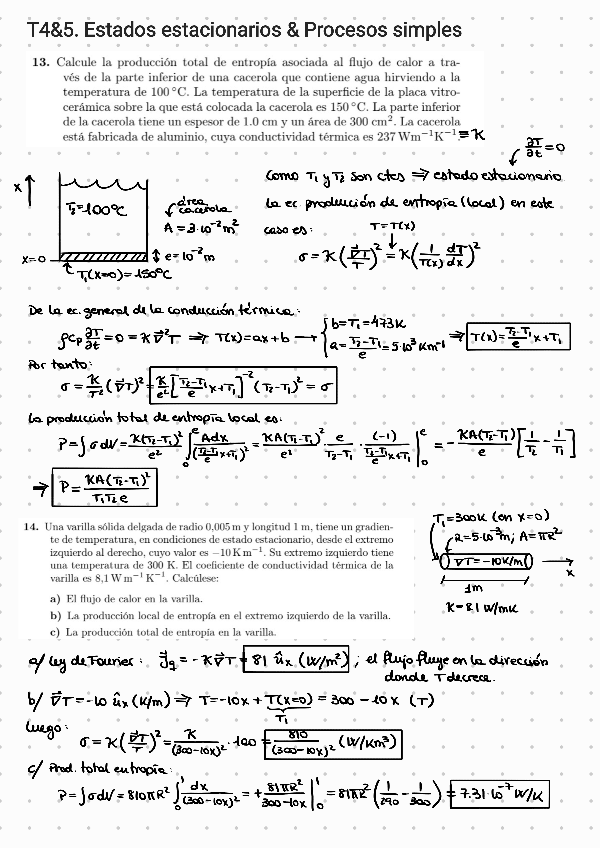 T4&5. Estados estacionarios & Procesos simples
13. Calcule la producción total de entropía asociada al flujo de calor a tra-
vés de la parte inferior de una cacerola que contiene agua hirviendo a la
temperatura de 100 °C. La temperatura de la superficie de la placa vitro-
cerámica sobre la que está colocada la cacerola es 150 °C. La parte inferior
de la cacerola tiene un espesor de 1.0 cm y un área de 300 cm². La cacerola
está fabricada de aluminio, cuya conductividad térmica es 237 W m⁻¹K⁻¹. ≡ K
∂T/∂t = 0
x
T₂=100°C
área cacerola
A = 3·10⁻² m²
x=0
e=10⁻² m
T₁(x=0)=150°C
Como T₁ y T₂ son ctes ⇒ estado estacionario
La ec. producción de entropía (local) en este
caso es:
T=T(x)
σ = K(∇⃗T/T)² = K(1/T(x) dT/dx)²
De la ec. general de la conducción térmica:
ρcₚ ∂T/∂t = 0 = K∇⃗²T ⇒ T(x) = ax + b → { b = T₁ = 473K
a = (T₂-T₁)/e = -5·10³ Km⁻¹ ⇒ T(x) = (T₂-T₁)/e x + T₁
Por tanto:
σ = K/T² (∇⃗T)² = K/e² [(T₂-T₁)/e x + T₁]⁻² (T₂-T₁)² = σ
La producción total de entropía local es:
P = ∫σdV = K(T₂-T₁)²/e² ∫₀ᵉ Adx/((T₂-T₁)/e x + T₁)² = KA(T₂-T₁)²/e² · e/(T₂-T₁) · (-1)/((T₂-T₁)/e x + T₁) |₀ᵉ = - KA(T₂-T₁)/e [1/T₂ - 1/T₁]
→ P = KA(T₂-T₁)²/(T₁T₂e)
14. Una varilla sólida delgada de radio 0,005 m y longitud 1 m, tiene un gradien-
te de temperatura, en condiciones de estado estacionario, desde el extremo
izquierdo al derecho, cuyo valor es −10 K m⁻¹. Su extremo izquierdo tiene
una temperatura de 300 K. El coeficiente de conductividad térmica de la
varilla es 8,1 W m⁻¹ K⁻¹. Calcúlese:
a) El flujo de calor en la varilla.
b) La producción local de entropía en el extremo izquierdo de la varilla.
c) La producción total de entropía en la varilla.
T₁=300K (en x=0)
R=5·10⁻³ m; A=πR²
∇T=-10K/m
x
1m
K=8.1 W/mK
a/ Ley de Fourier: J⃗q = -K∇⃗T = 81 ûₓ (W/m²) ; el flujo fluye en la dirección
donde T decrece.
b/ ∇⃗T = -10 ûₓ (K/m) ⇒ T = -10x + T(x=0) = 300 - 10x (T)
T₁
luego:
σ = K(∇⃗T/T)² = K/(300-10x)² · 100 = 810/(300-10x)² (W/Km³)
c/ Prod. total entropía:
P = ∫σdV = 810πR² ∫₀¹ dx/(300-10x)² = + 81πR²/(300-10x) |₀¹ = 81πR² (1/290 - 1/300) = 7.31·10⁻⁷ W/K